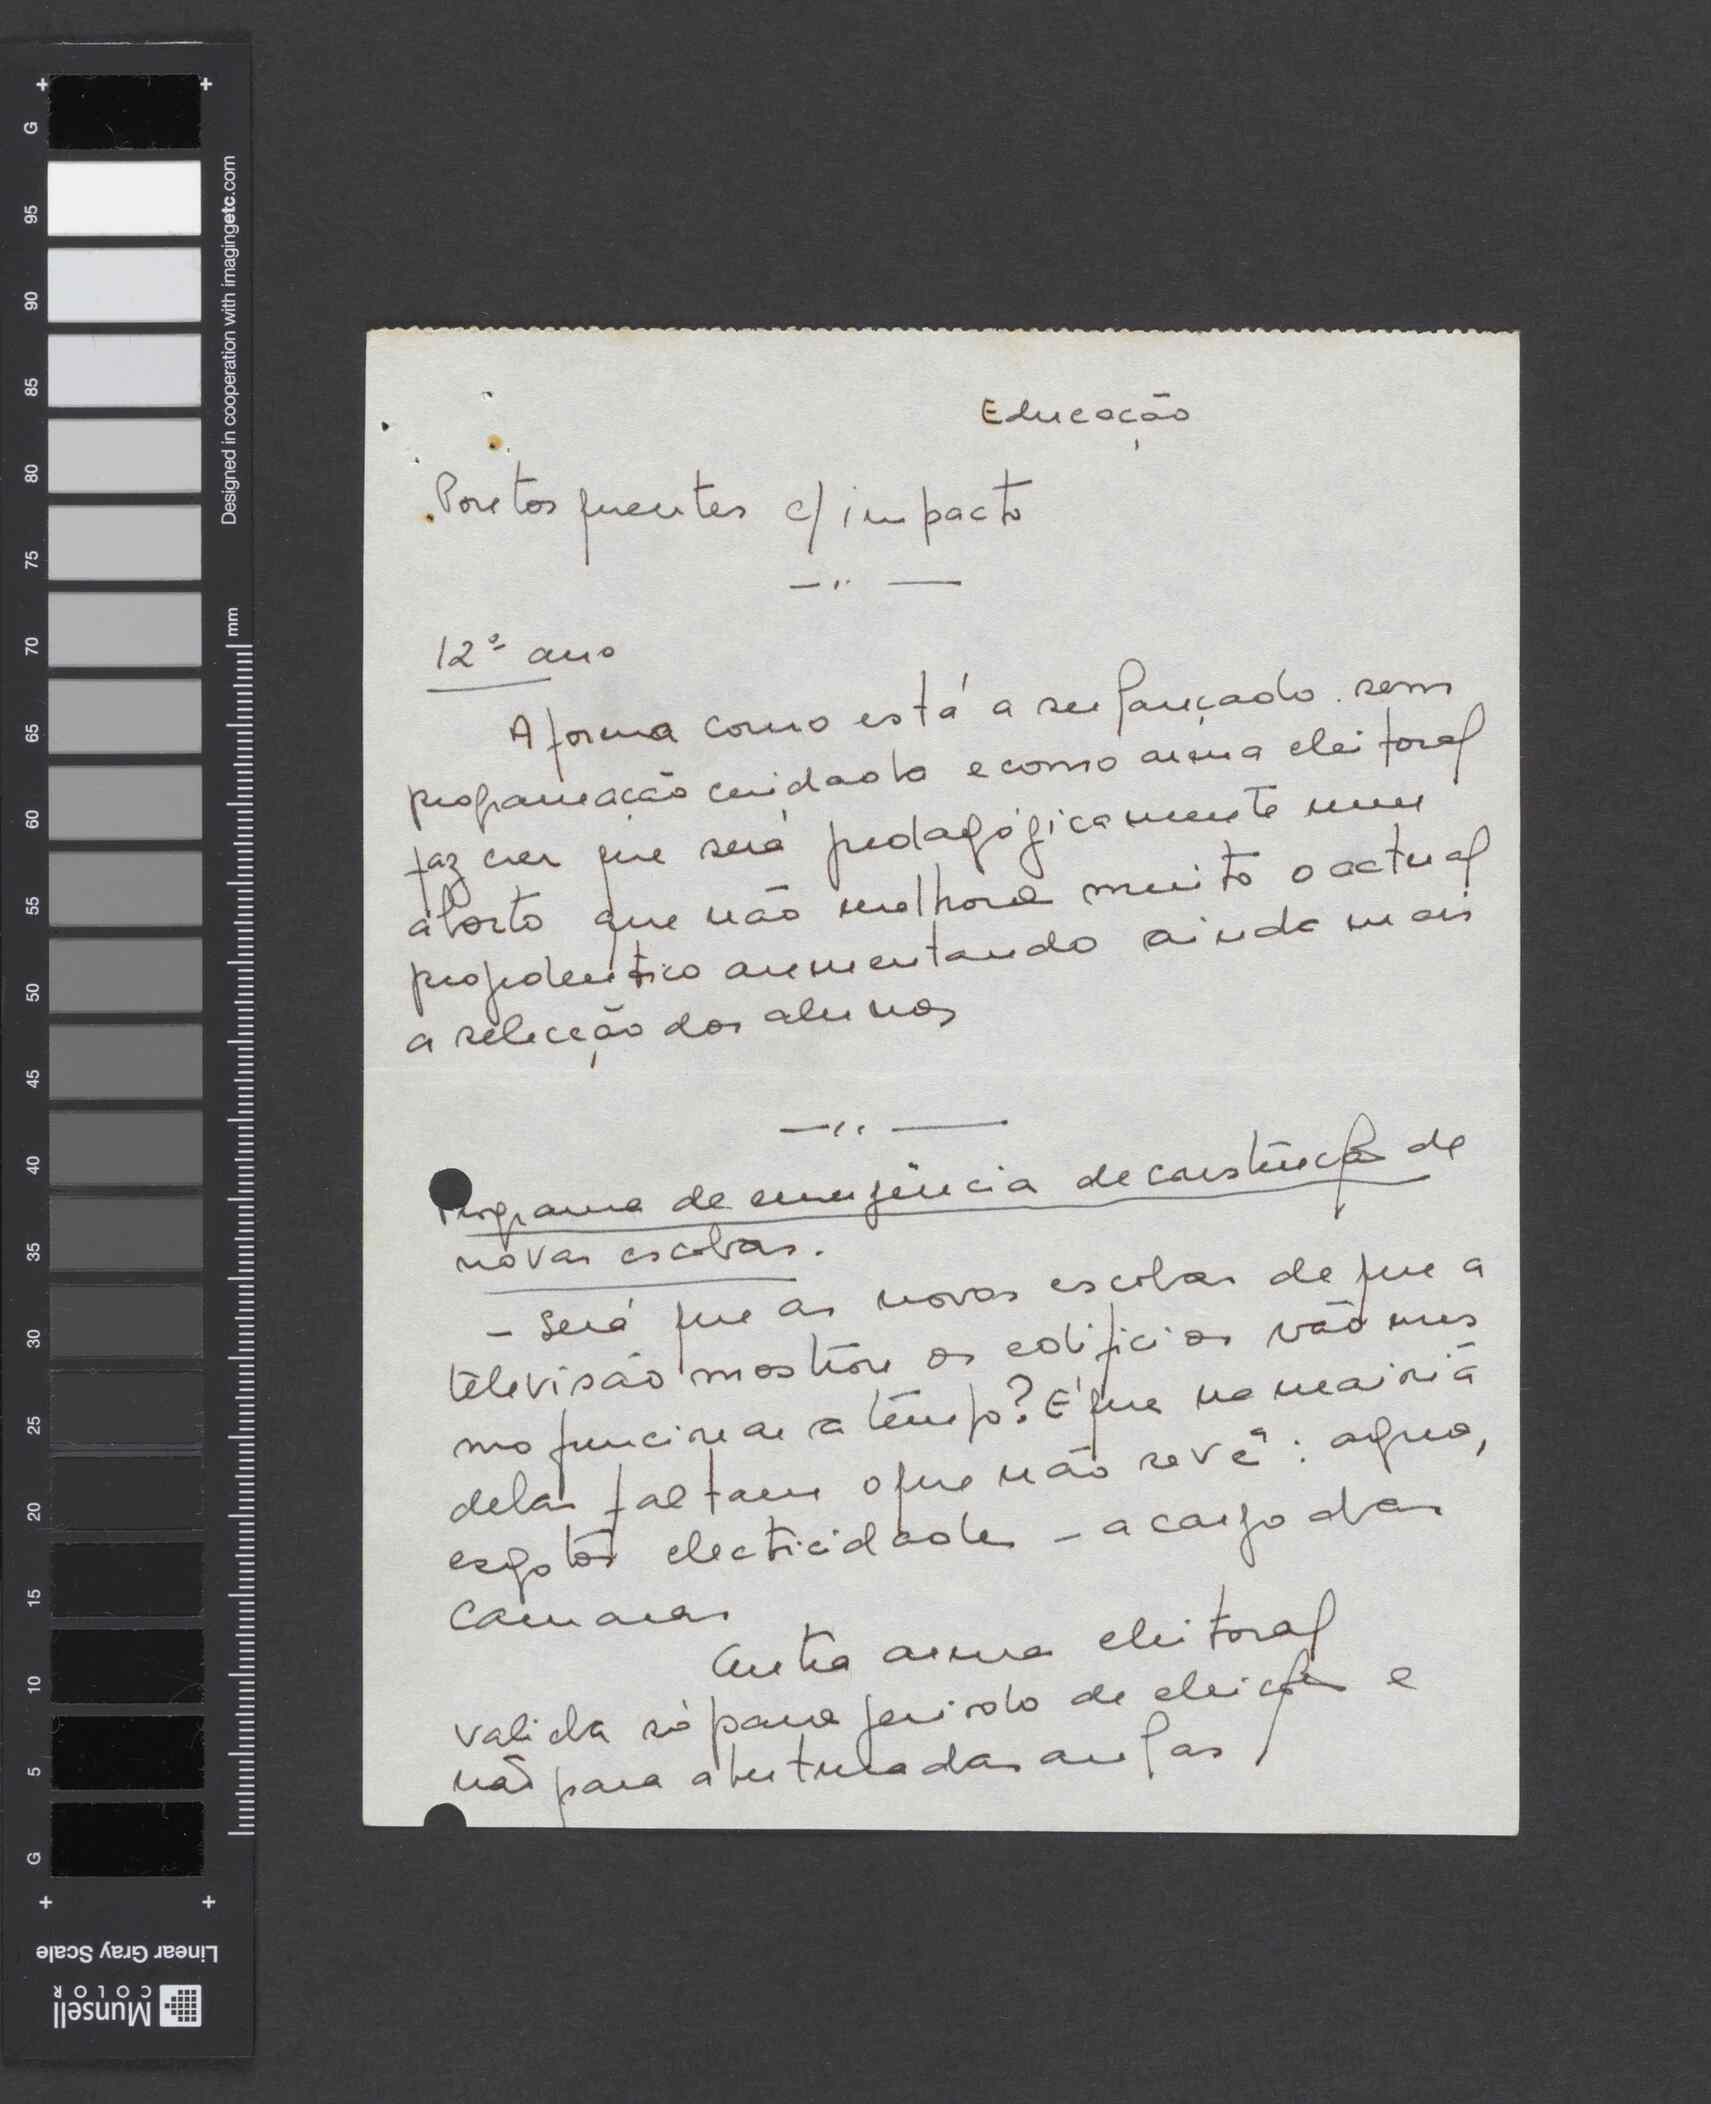 Educação
Pontos quentes c/ impacto
12º ano
A forma como está a ser lançado sem
programação cuidado e como arma eleitoral
faz crer que será pedagógicamente um
aborto que não melhora muito o actual
propedeutico aumentando ainda mais
a selecção dos alunos
Programa de emergência de construção de
novas escolas.
- Será que as novas escolas de que a
televisão mostrou os edificios vão mes
mo funcionar a tempo? É que na maioria
delas faltam o que não se vê: agua,
esgotos electricidade - a cargo das
Camaras
Outra arma eleitoral
valida só para periodo de eleição e
não para abertura das aulas
G
95
90
85
80
75
70
65
60
55
50
45
40
35
30
25
20
15
10
5
G
Designed in cooperation with imagingetc.com
mm
Linear Gray Scale
Munsell
COLOR